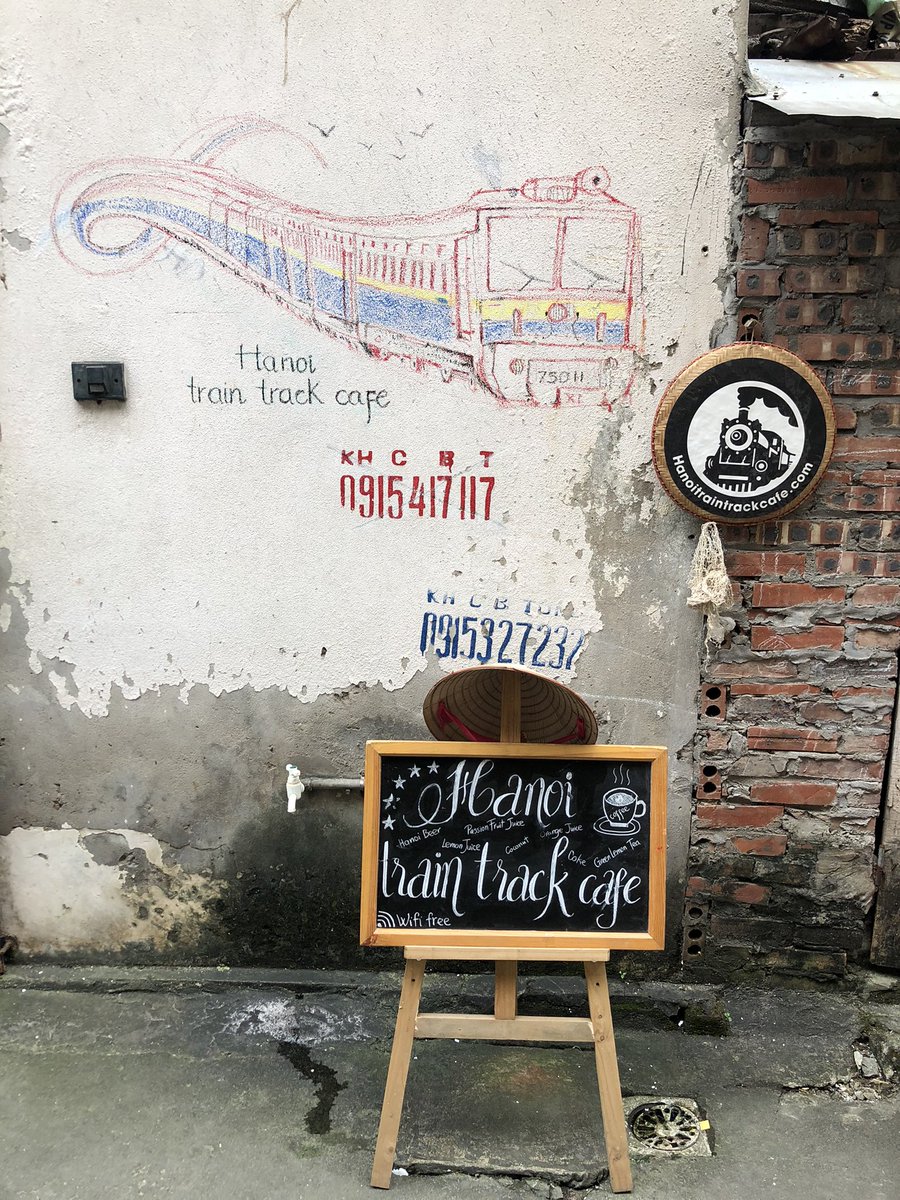 Hanoi
train track cafe
750H
KH C B T
0915417117
Hanoitraintrackcafe.com
KH C B T
0915327232
Hanoi
coffee
Hanoi Beer Passion Fruit Juice Orange Juice
Lemon Juice Coconut Coke Green Lemon Tea
train track cafe
Wifi free